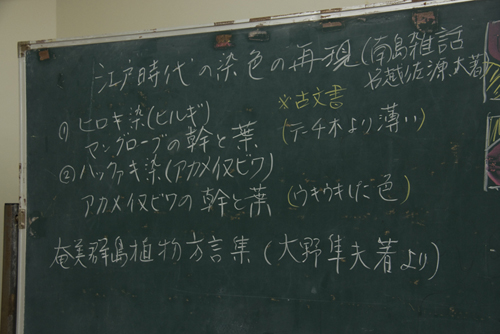 江戸時代の染色の再現(南島雑話
名越佐源太著)
※古文書
① ヒロキ染(ヒルギ)
マングローブの幹と葉 (テーチ木より薄い)
② ハツファキ染(アカメイヌビワ)
アカメイヌビワの幹と葉 (ウキウキした色)
奄美群島植物方言集(大野隼夫著より)